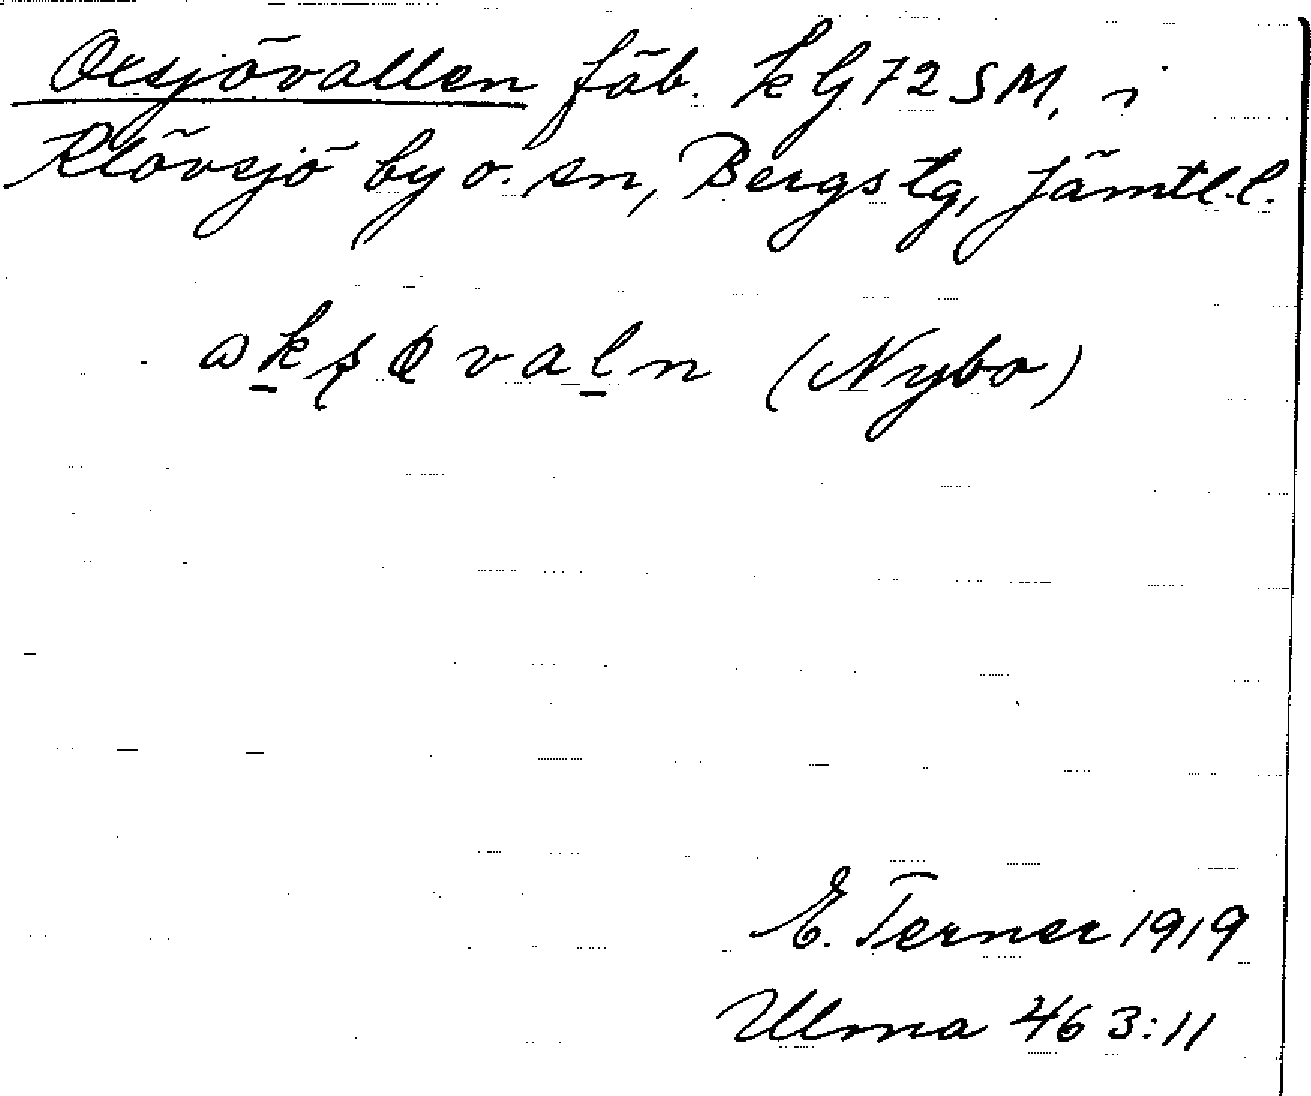 Oxsjövallen fäb. k G72SM, i
Klövsjö by o. sn, Bergs tg, Jämtl. l.
(Nybo)
E. Terner 1919
Ulma 463:11